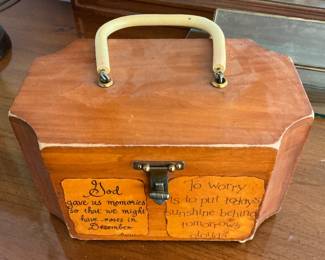 God
gave us memories
so that we might
have roses in
December
To worry
is to put today's
sunshine behind
tomorrow's
clouds